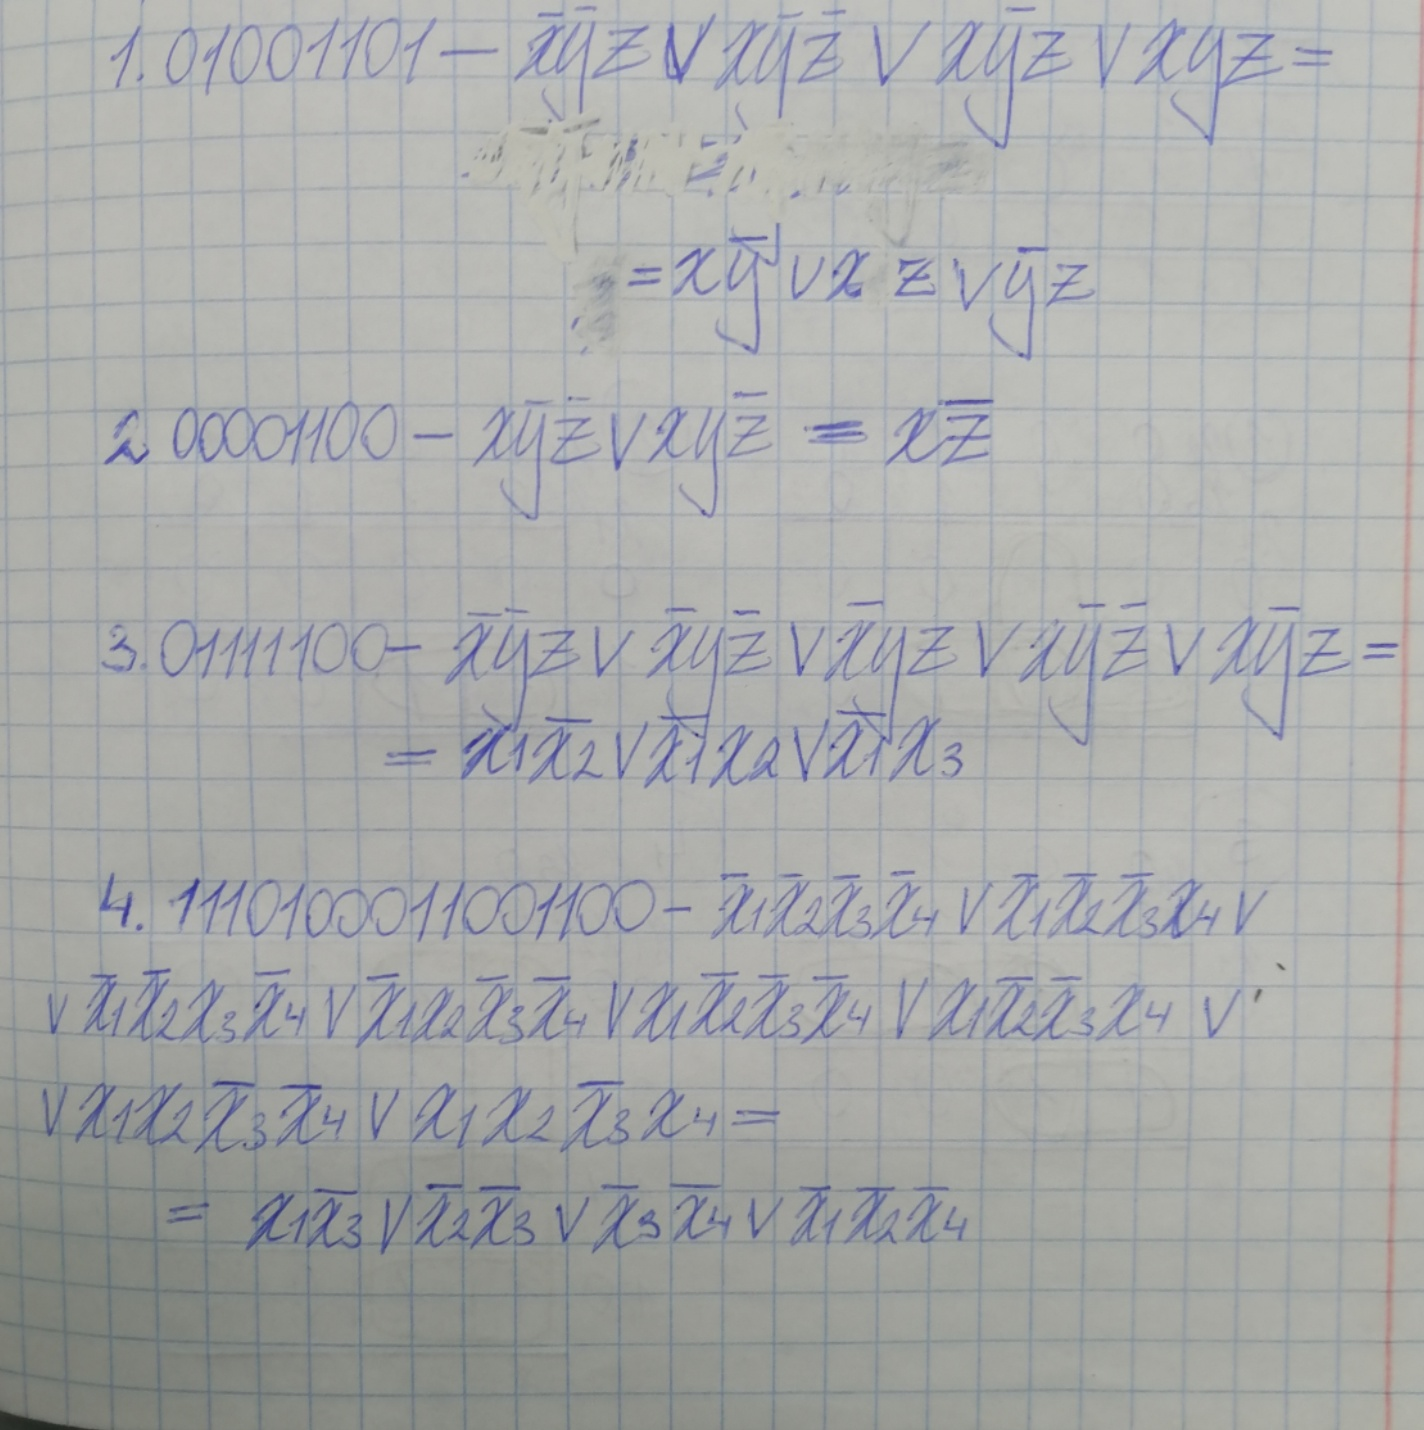 1. 01001101 – x̅y̅z ∨ xy̅z̅ ∨ xy̅z ∨ xyz =
= xy̅ ∨ x z ∨ y̅z
2. 00001100 – xy̅z̅ ∨ xyz̅ = xz̅
3. 01111100 – x̅y̅z ∨ x̅yz̅ ∨ x̅yz ∨ xy̅z̅ ∨ xy̅z =
= x1x̅2 ∨ x̅1x2 ∨ x̅1x3
4. 1110100011001100 – x̅1x̅2x̅3x̅4 ∨ x̅1x̅2x̅3x4 ∨
∨ x̅1x̅2x3x̅4 ∨ x̅1x2x̅3x̅4 ∨ x1x̅2x̅3x̅4 ∨ x1x̅2x̅3x4 ∨
∨ x1x2x̅3x̅4 ∨ x1x2x̅3x4 =
= x1x̅3 ∨ x̅2x̅3 ∨ x̅3x̅4 ∨ x̅1x̅2x̅4